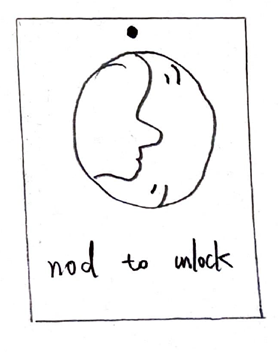 nod to unlock